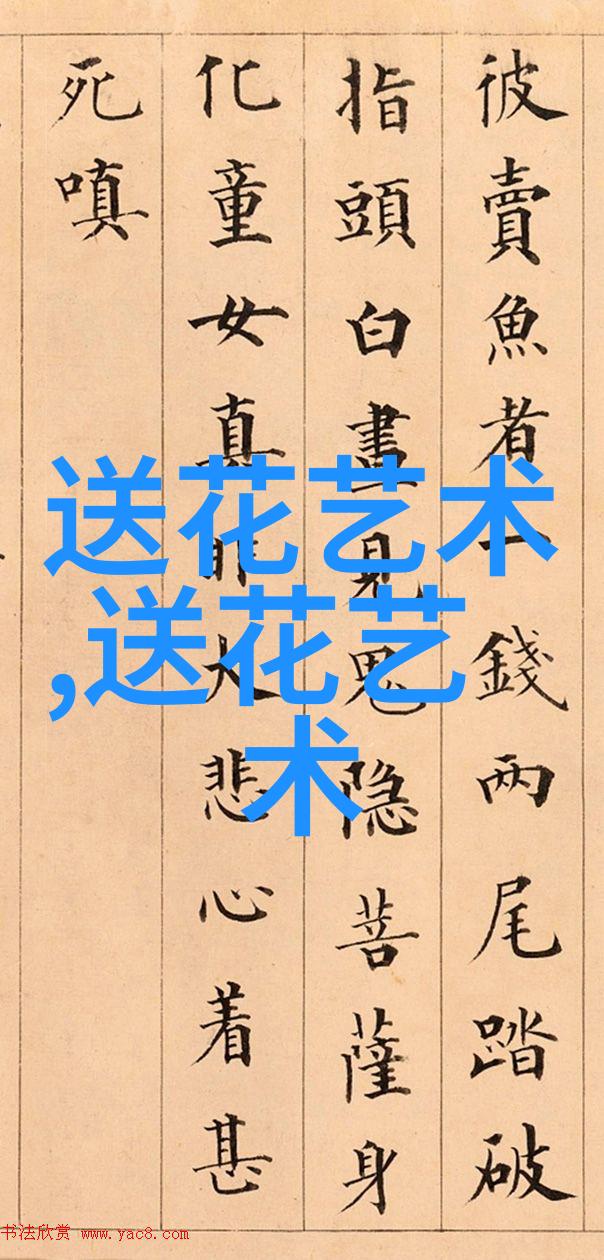 彼賣魚者一錢两尾踏破
指頭白晝見鬼隐菩薩身
化童女真大悲心着甚
死嗔
送花艺术
,送花艺
术
书法欣赏 www.yac8.com